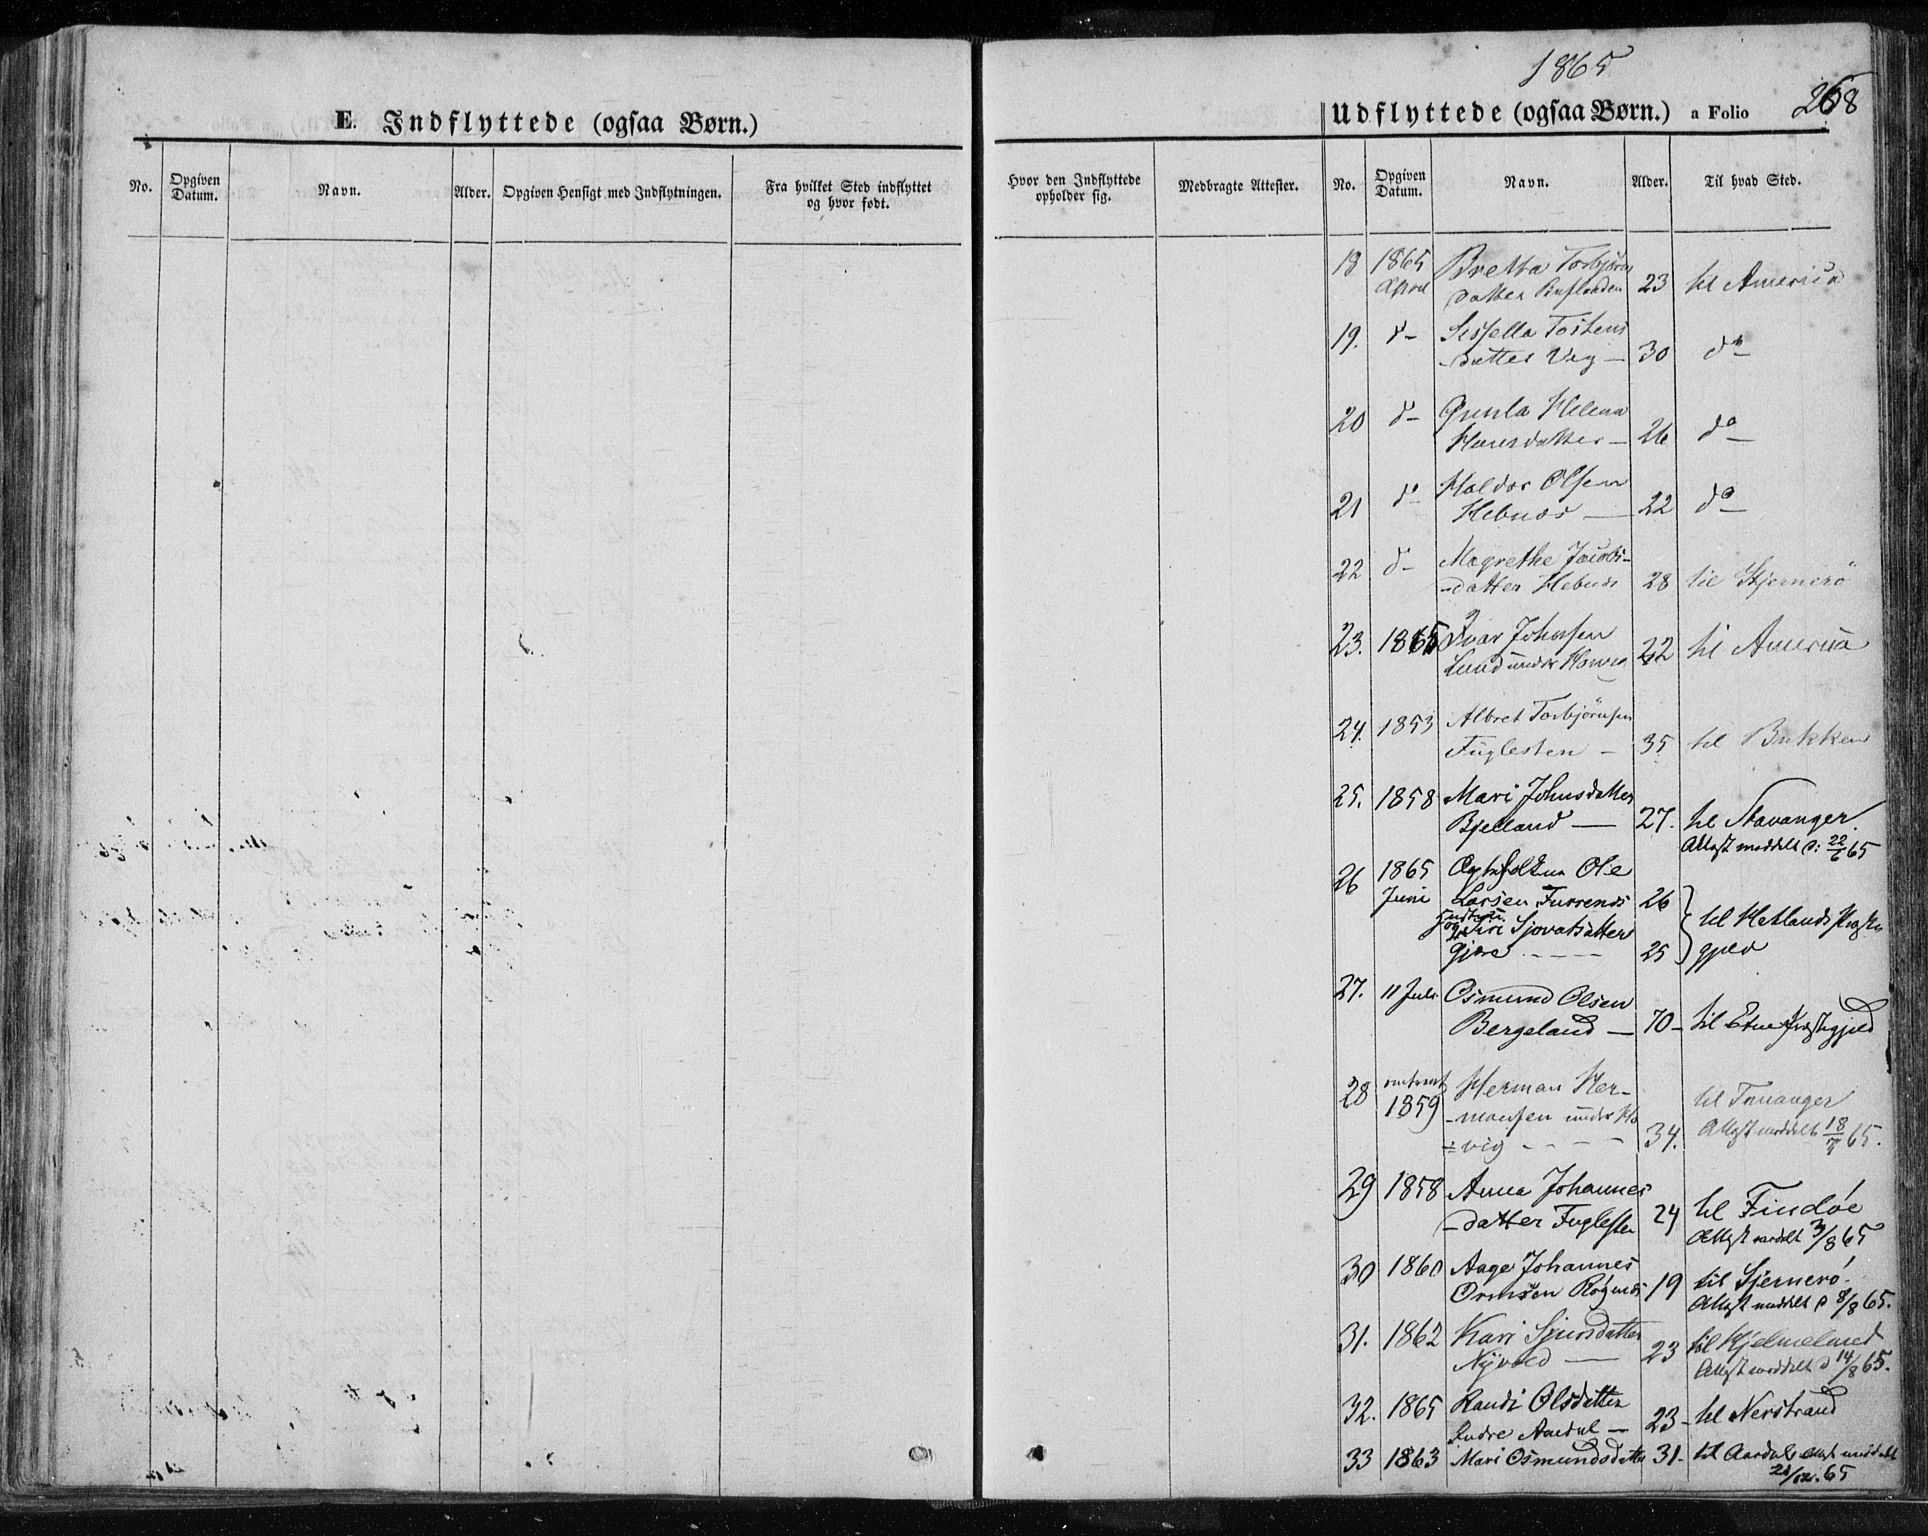 1865
268
E. Indflyttede (ogsaa Børn.)
Udflyttede (ogsaa Børn.) a Folio
No.
Opgiven Datum.
Navn.
Alder.
Opgiven Hensigt med Indflytningen.
Fra hvilket Sted indflyttet
og hvor født.
Hvor den Indflyttede
opholder sig.
Medbragte Attester.
No.
Opgiven Datum.
Navn.
Alder.
Til hvad Sted.
18 1865 Bretta Torbjørns
April datter 23 til America
19. d- Sissella Tostens
datter Veg — 30 do
20 d- Gunla Helena
Hansdatter — 26 do
21 do Haldor Olsen
Hebnes — 22 do
22 d- Magrethe Jacobs-
-datter Hebnes 28 til Stjernerö
23. 1865 Ivar Johnsen
Lund under 22 til America
24. 1853 Albret Torbjörnsen
Fuglesten — 35 til Bukken
25. 1858 Mari Johnsdatter
Bjelland — 27. til Stavanger.
Attest meddelt d: 22/6 65
26 1865 Ole
Juni Larsen 26
og Siri Sjovatsdatter til Hetlands
Gjere 25 gjeld
27. 11 Juli Osmund Olsen
Bergeland — 70 - til Etne Præstegjeld
28 omtrent Herman Her- til Tananger
1859 -mansen under Ho Attest meddelt 18/7 65.
=vig - - - 34.
29 1858 Anna Johannes
-datter Fuglesten 24 til Findöe
Attest meddelt 3/8 65
30 1860 Aage Johannes
Ormsen 19 til Sjernerö.
Attest meddelt d 8/8 65.
31. 1862 Kari Sjursdatter
— 23 til Hjelmeland
Attest meddelt d 14/8 65.
32. 1865 Randi Olsdatter
Indre — 23 - til Nerstrand
33 1863 Mari Osmundsdatter 31 - til Aardal Attest meddelt
21/12. 65